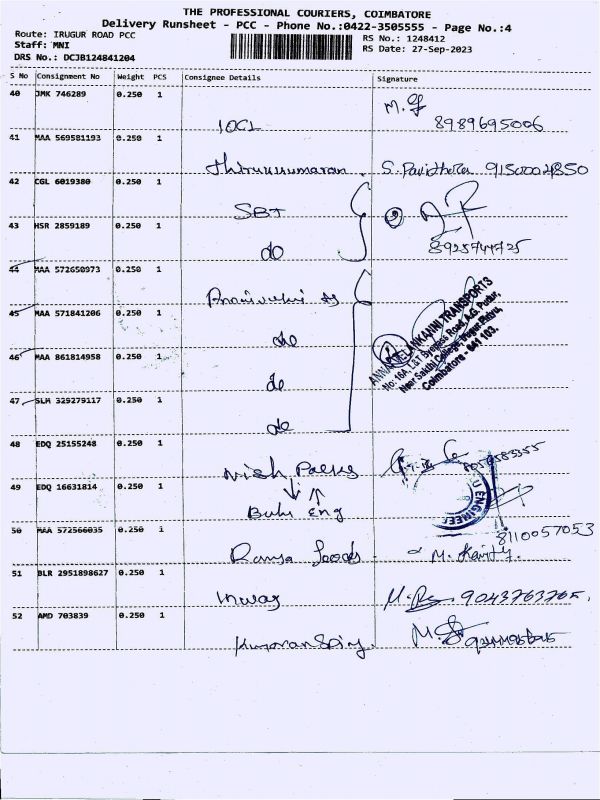 THE PROFESSIONAL COURIERS, COIMBATORE
Delivery Runsheet - PCC - Phone No.:0422-3505555 - Page No.:4
Route: IRUGUR ROAD PCC
RS No.: 1248412
Staff: MNI
RS Date: 27-Sep-2023
DRS No.: DCJB124841204
S No Consignment No Weight PCS Consignee Details Signature
40 JMK 746289 0.250 1
IOCL 8989695006
41 MAA 569581193 0.250 1
Thirukkumaran. S. Pavithra 9150002850
42 CGL 6019380 0.250 1
SBI
43 HSR 2859189 0.250 1
do 8925744725
44 MAA 572650973 0.250 1
45 MAA 571841206 0.250 1
do
46 MAA 861814958 0.250 1
do
47 SLM 329279117 0.250 1
do
ANNAI VELANKANNI TRANSPORTS
No: 16A, L&T Byepass Road, A.G. Pudur,
Coimbatore - 641 103.
48 EDQ 25155248 0.250 1
Nish Packs
49 EDQ 16631814 0.250 1
Eng
ENGINEER
50 MAA 572566035 0.250 1
Ramya foods 8110057053
51 BLR 2951898627 0.250 1
9043763765.
52 AMD 703839 0.250 1